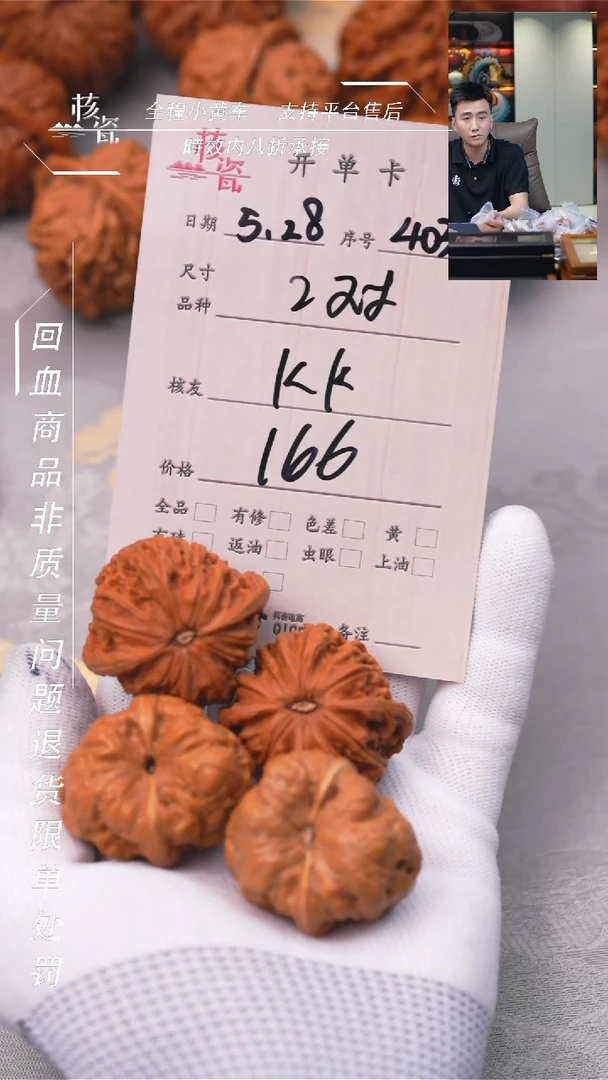 核瓷
全程小黄车 支持平台售后
时效内八折承接
核瓷
开单卡
日期 5.28 序号
尺寸
品种 2对
核友 kk
价格 166
全品 有修 色差 黄
返油 虫眼 上油
抖音电商
备注
回血商品非质量问题退货限单处罚